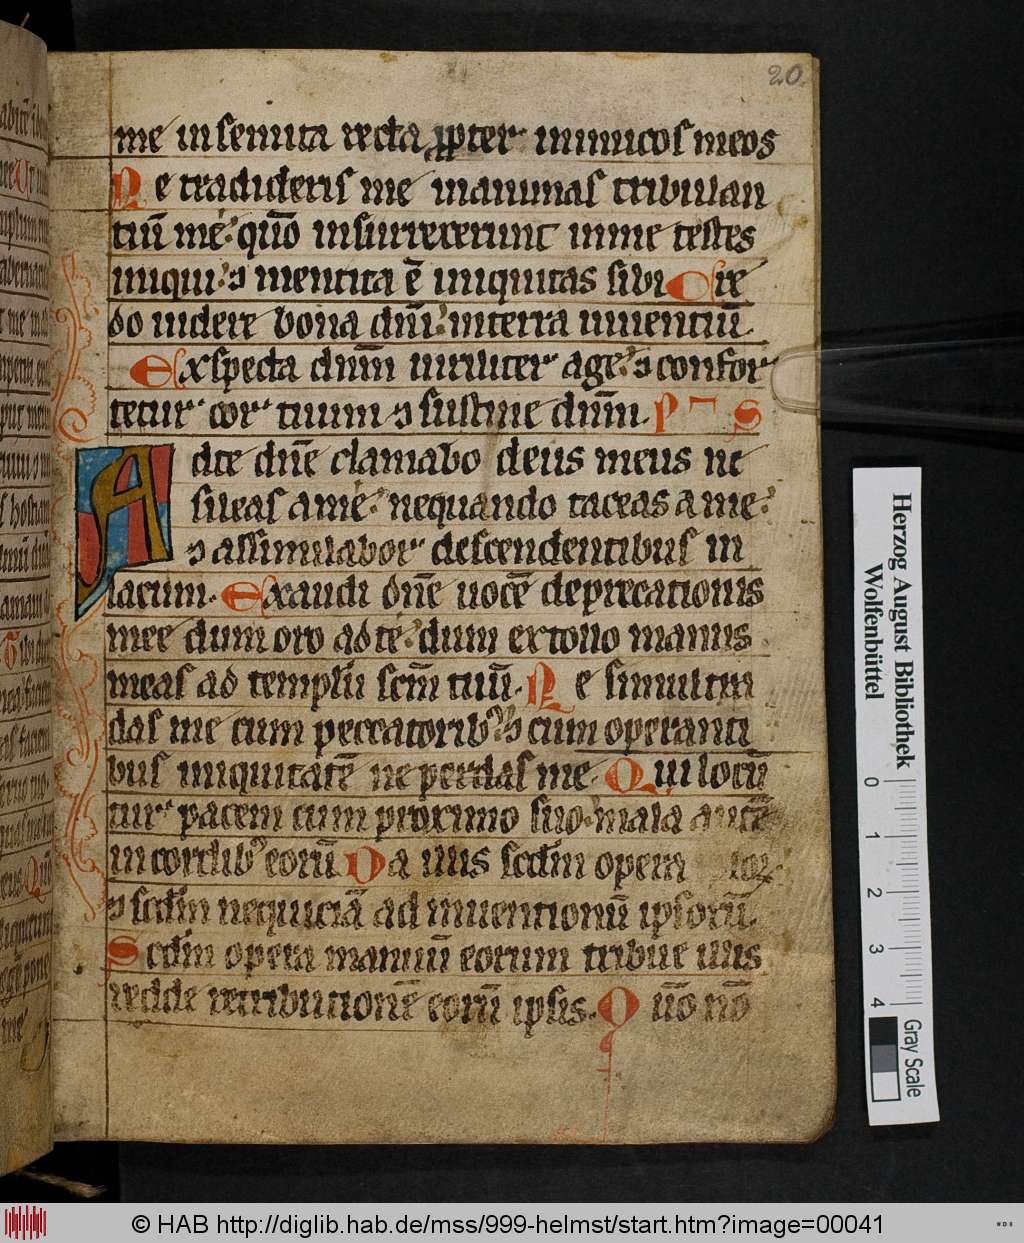 20.
me in semita recta ꝓpter inimicos meos
Ne tradideris me in animas tribulan
tiū me: qm̄ insurrexerunt in me testes
iniqui: ⁊ mentita ē iniquitas sibi Cre
do uidere bona dn̄i: in terra uiuentiū.
Exspecta dnm̄ uiriliter age: ⁊ confor
tetur cor tuum ⁊ sustine dnm̄. P S
Ad te dn̄e clamabo deus meus ne
sileas a me: nequando taceas a me:
⁊ assimilabor descendentibus in
lacum. Exaudi dn̄e uocē deprecationis
mee dum oro ad te: dum extollo manus
meas ad templū scm̄ tuū. Ne simul tra
das me cum peccatoribꝰ: ⁊ cum operanti
bus iniquitatē ne perdas me. Qui locū
tur pacem cum proximo suo: mala autē
in cordibꝰ eorū Da illis scdm̄ opera
⁊ scdm̄ nequiciā ad inuentionū ipsorū.
Scdm̄ opera manuū eorum tribue illis
redde retributionē eorū ipsis. Qm̄ nō
Herzog August Bibliothek
Wolfenbüttel
0 1 2 3 4
Gray Scale
© HAB http://diglib.hab.de/mss/999-helmst/start.htm?image=00041